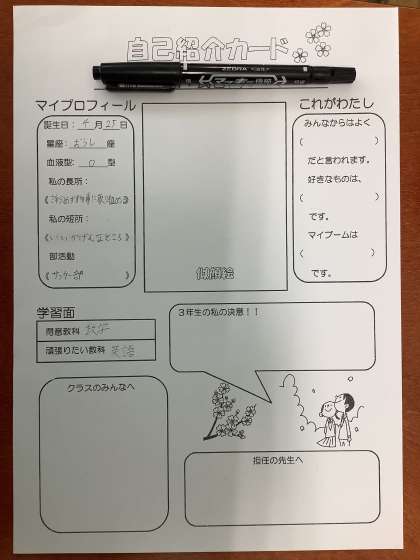 自己紹介カード
ZEBRA
マイプロフィール
誕生日：4月25日
星座：おうし座
血液型：O型
私の長所：
私の短所：
《いいかげんなところ》
部活動
《サッカー部》
似顔絵
これがわたし
みんなからはよく
（　　　　　）
だと言われます。
好きなものは、
（　　　　　）
です。
マイブームは
（　　　　　）
です。
学習面
得意教科 数学
頑張りたい教科 英語
３年生の私の決意！！
クラスのみんなへ
担任の先生へ